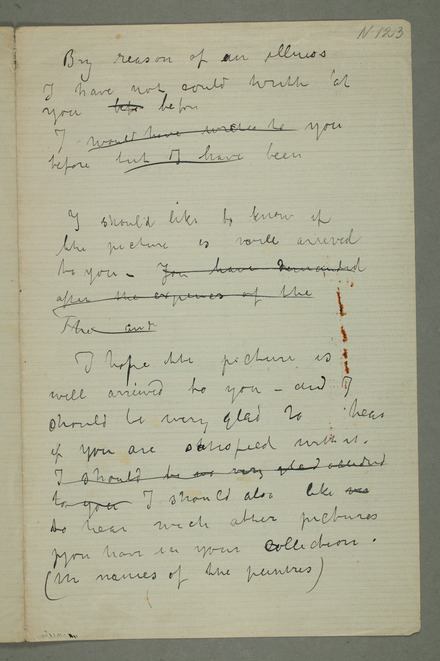 N 123
By reason of an illness
I have not could writh at
you before
I would have to you
before but I have been
I should like to know if
the picture is well arrived
to you – You have demanded
after the expences of the
The and
I hope the picture is
well arrived to you – and I
should be very glad to hear
if you are satisfied with it.
I should be very glad
to you I should also like
to hear wich other pictures
you have in your collection.
(the names of the peintres)